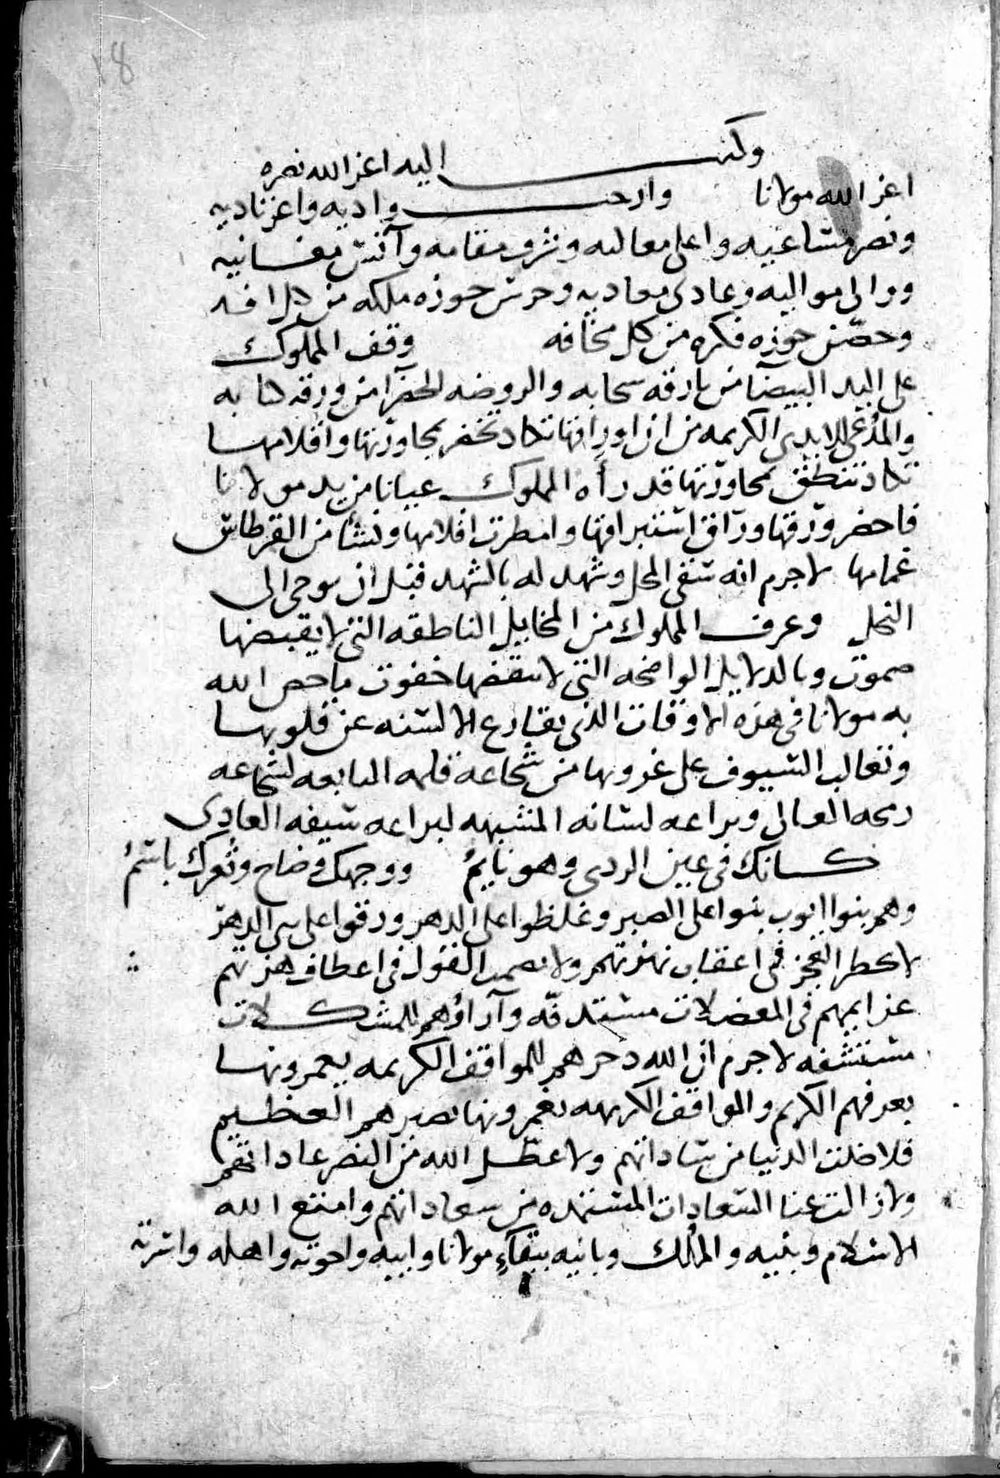 18
وكتب اليه اعز الله نصره
اعز الله مولانا وارحب واديه واعز ناديه
ونصر مشاعيه واعلى معاليه وشرف مقامه وآنس مغانيه
ووالى مواليه وعادى معاديه وحرس حوزه ملكه من كل افه
وحصّن حوزه فكره من كل مخافه وقف المملوك
على اليد البيضآ من بارقه سحابه والروضه الخضرآ من ورقه كتابه
والمدعى للايدى الكريمه من ان اوراقها تكاد تخضر بمجاورتها واقلامها
تكاد تنطق بمحاورتها قد رأه المملوك عيانا من يد مولانا
فاخضر ورقها وراق استبراقها وامطرت اقلامها ونشأ من القرطاس
غمامها لاجرم انه شفى المحل وشهد له بالشهد قبل ان يوحى الى
النحل وعرف المملوك من المخايل الناطقه التى لا يقبضها
صموت وبالدلايل الواضحه التى لا ينقضها خفوت ما خص الله
به مولانا فى هذه الاوقات الذى يقارع الالسنه عن قلوبها
وتغالب السيوف على غروبها من شجاعة قلبه التابعه لشجاعه
رمحه العالى وبراعه لسانه المشبهه لبراعه سيفه العادى
كانك فى عين الردى وهو نايمُ ووجهك وضاح وثغرك باسمُ
وهم بنوا ايوب بنوا على الصبر وغلظوا على الدهر ورقوا على بنى الدهر
لا يخطر العجز فى اعقاب نهزتهم ولا الغفول فى اعطاف هزتهم
عزايمهم فى المعضلات مستدقه وآراؤهم للمشكلات
مستشفه لاجرم ان الله دخرهم للمواقف الكريمه يعمرونها
بعرفهم الكريم والمواقف الكريهه يغمرونها بصبرهم العظيم
فلا خلت الدنيا من ساداتهم ولا عطّل الله من النصر عاداتهم
ولا زالت عنا السعادات المستمده من سعاداتهم وامتع الله
الاسلام وبنيه والملك وبانيه ببقآء مولانا وابيه واخوته واهله واسرته